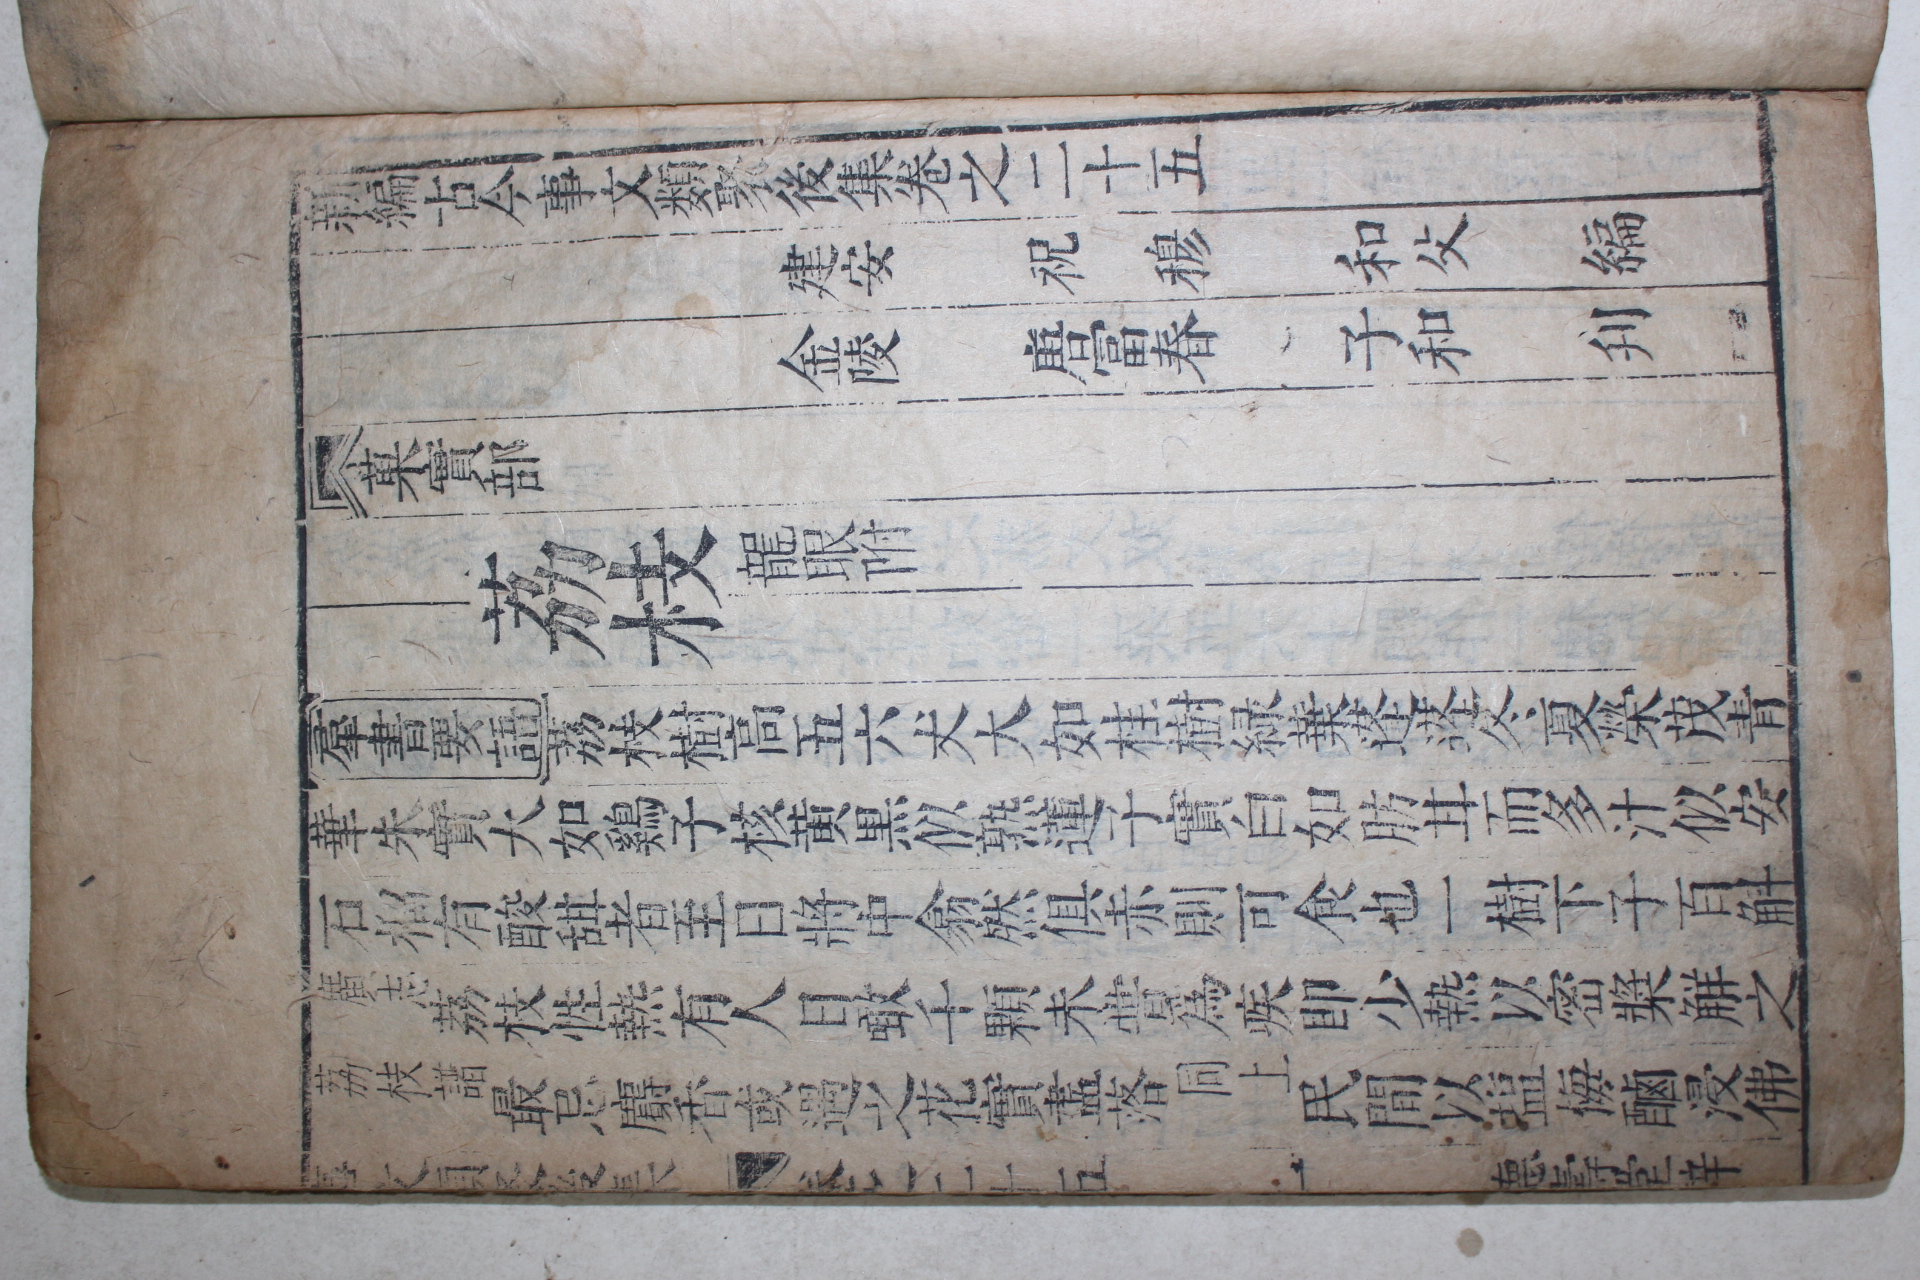 新編古今事文類聚後集卷之二十五
建安 祝穆 和父 編
金陵 唐富春 子和 刋
菓實部
荔枝 龍眼附
羣書要語 荔枝樹高五六丈大如桂樹緑葉蓬蓬冬夏榮茂青
華朱實大如鷄子核黄黒似熟蓮子實白如肪甘而多汁似安
石榴有酸甜者至日將中翕然俱赤則可食也一樹下子百斛
廣志 荔枝性熱有人日啖千顆未嘗爲疾即少熱以密漿解之
荔枝譜 最忌麝香或遇之花實盡落 同上 民間以塩梅鹵浸佛
事文類聚後集 卷之二十五 一 德壽堂梓